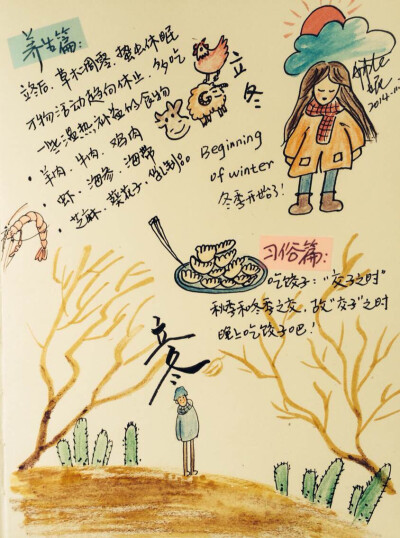 养生篇:
立冬后,草木凋零、蛰虫休眠
万物活动趋向休止,多吃
一些温热补益的食物
• 羊肉、牛肉、鸡肉
• 虾、海参、海带
• 芝麻、葵花子、乳制品
立冬
Beginning
of winter
冬季开始了!
2014.11
习俗篇:
吃饺子:“交子之时”
秋季和冬季之交,故“交子”之时
晚上吃饺子吧!
立冬